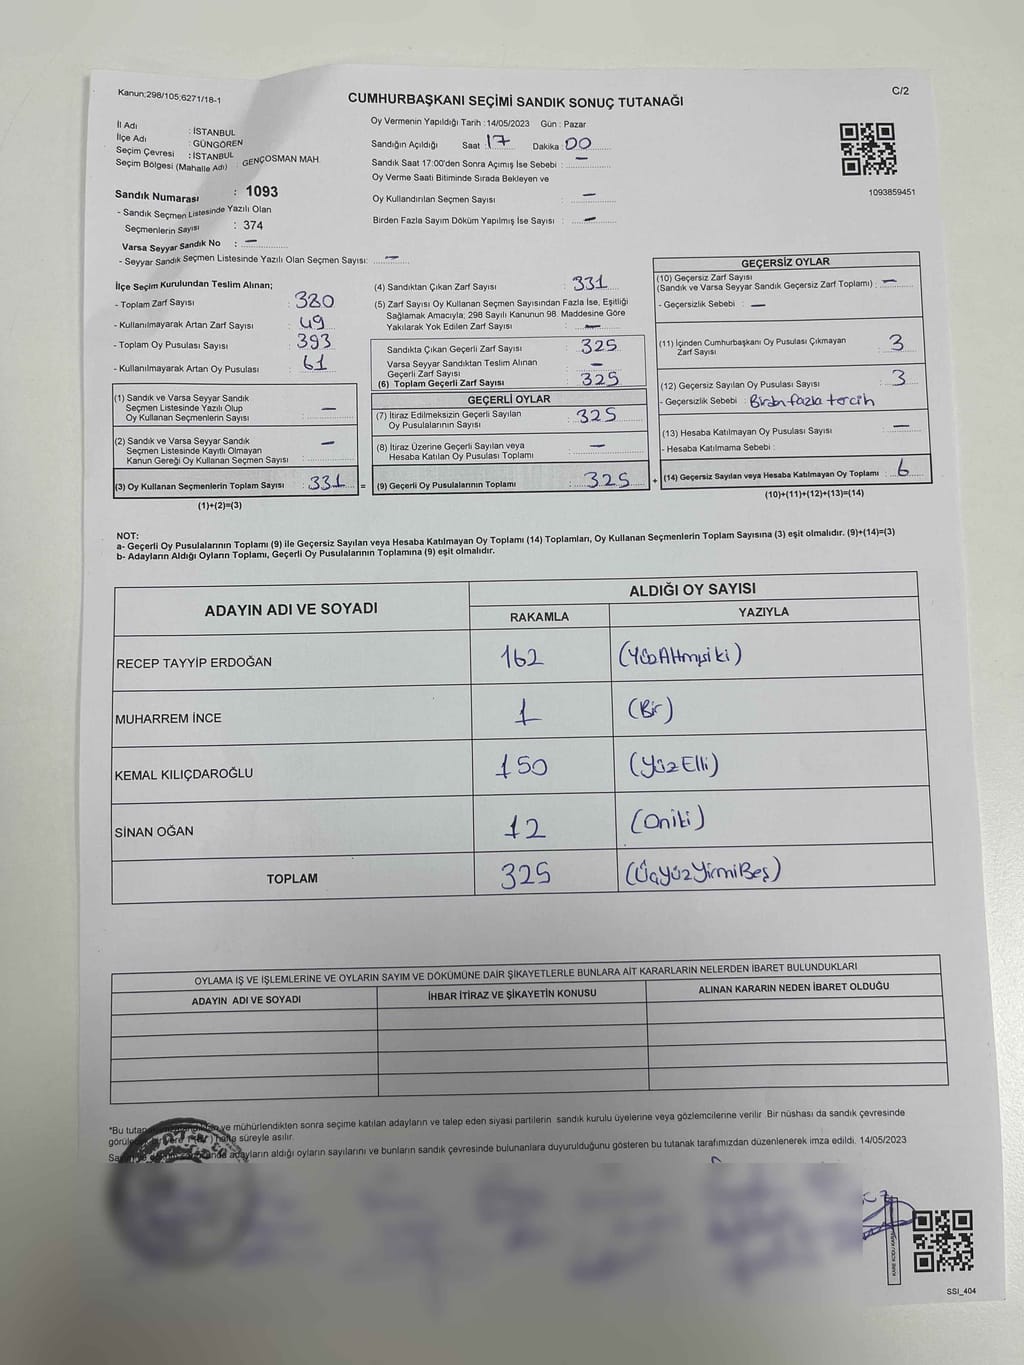 Kanun:298/105;6271/18-1
C/2
CUMHURBAŞKANI SEÇİMİ SANDIK SONUÇ TUTANAĞI
Oy Vermenin Yapıldığı Tarih : 14/05/2023 Gün : Pazar
İl Adı : İSTANBUL
İlçe Adı : GÜNGÖREN
Seçim Çevresi : İSTANBUL
Seçim Bölgesi (Mahalle Adı) GENÇOSMAN MAH.
Sandık Numarası : 1093
- Sandık Seçmen Listesinde Yazılı Olan
Seçmenlerin Sayısı : 374
Varsa Seyyar Sandık No : —
- Seyyar Sandık Seçmen Listesinde Yazılı Olan Seçmen Sayısı: —
Sandığın Açıldığı Saat : 17 Dakika : 00
Sandık Saat 17:00'den Sonra Açımış İse Sebebi : —
Oy Verme Saati Bitiminde Sırada Bekleyen ve
Oy Kullandırılan Seçmen Sayısı : —
Birden Fazla Sayım Döküm Yapılmış İse Sayısı : —
1093859451
İlçe Seçim Kurulundan Teslim Alınan;
- Toplam Zarf Sayısı : 380
- Kullanılmayarak Artan Zarf Sayısı : 49
- Toplam Oy Pusulası Sayısı : 393
- Kullanılmayarak Artan Oy Pusulası : 61
(1) Sandık ve Varsa Seyyar Sandık
Seçmen Listesinde Yazılı Olup
Oy Kullanan Seçmenlerin Sayısı : —
(2) Sandık ve Varsa Seyyar Sandık
Seçmen Listesinde Kayıtlı Olmayan
Kanun Gereği Oy Kullanan Seçmen Sayısı : —
(3) Oy Kullanan Seçmenlerin Toplam Sayısı : 331 =
(1)+(2)=(3)
(4) Sandıktan Çıkan Zarf Sayısı : 331
(5) Zarf Sayısı Oy Kullanan Seçmen Sayısından Fazla İse, Eşitliği
Sağlamak Amacıyla; 298 Sayılı Kanunun 98. Maddesine Göre
Yakılarak Yok Edilen Zarf Sayısı : —
Sandıkta Çıkan Geçerli Zarf Sayısı : 325
Varsa Seyyar Sandıktan Teslim Alınan
Geçerli Zarf Sayısı : —
(6) Toplam Geçerli Zarf Sayısı : 325
GEÇERLİ OYLAR
(7) İtiraz Edilmeksizin Geçerli Sayılan
Oy Pusulalarının Sayısı : 325
(8) İtiraz Üzerine Geçerli Sayılan veya
Hesaba Katılan Oy Pusulası Toplamı : —
(9) Geçerli Oy Pusulalarının Toplamı : 325 +
GEÇERSİZ OYLAR
(10) Geçersiz Zarf Sayısı
(Sandık ve Varsa Seyyar Sandık Geçersiz Zarf Toplamı) : —
- Geçersizlik Sebebi : —
(11) İçinden Cumhurbaşkanı Oy Pusulası Çıkmayan
Zarf Sayısı : 3
(12) Geçersiz Sayılan Oy Pusulası Sayısı : 3
- Geçersizlik Sebebi : Birden fazla tercih
(13) Hesaba Katılmayan Oy Pusulası Sayısı : —
- Hesaba Katılmama Sebebi :
(14) Geçersiz Sayılan veya Hesaba Katılmayan Oy Toplamı : 6
(10)+(11)+(12)+(13)=(14)
NOT:
a- Geçerli Oy Pusulalarının Toplamı (9) ile Geçersiz Sayılan veya Hesaba Katılmayan Oy Toplamı (14) Toplamları, Oy Kullanan Seçmenlerin Toplam Sayısına (3) eşit olmalıdır. (9)+(14)=(3)
b- Adayların Aldığı Oyların Toplamı, Geçerli Oy Pusulalarının Toplamına (9) eşit olmalıdır.
ADAYIN ADI VE SOYADI ALDIĞI OY SAYISI
RAKAMLA YAZIYLA
RECEP TAYYİP ERDOĞAN 162 (YüzAltmışiki)
MUHARREM İNCE 1 (Bir)
KEMAL KILIÇDAROĞLU 150 (YüzElli)
SİNAN OĞAN 12 (Oniki)
TOPLAM 325 (ÜçyüzYirmiBeş)
OYLAMA İŞ VE İŞLEMLERİNE VE OYLARIN SAYIM VE DÖKÜMÜNE DAİR ŞİKAYETLERLE BUNLARA AİT KARARLARIN NELERDEN İBARET BULUNDUKLARI
ADAYIN ADI VE SOYADI İHBAR İTİRAZ VE ŞİKAYETİN KONUSU ALINAN KARARIN NEDEN İBARET OLDUĞU
*Bu ve mühürlendikten sonra seçime katılan adayların ve talep eden siyasi partilerin sandık kurulu üyelerine veya gözlemcilerine verilir Bir nüshası da sandık çevresinde
hafta süreyle asılır.
adayların aldığı oyların sayılarını ve bunların sandık çevresinde bulunanlara duyurulduğunu gösteren bu tutanak tarafımızdan düzenlenerek imza edildi. 14/05/2023
SSI_404